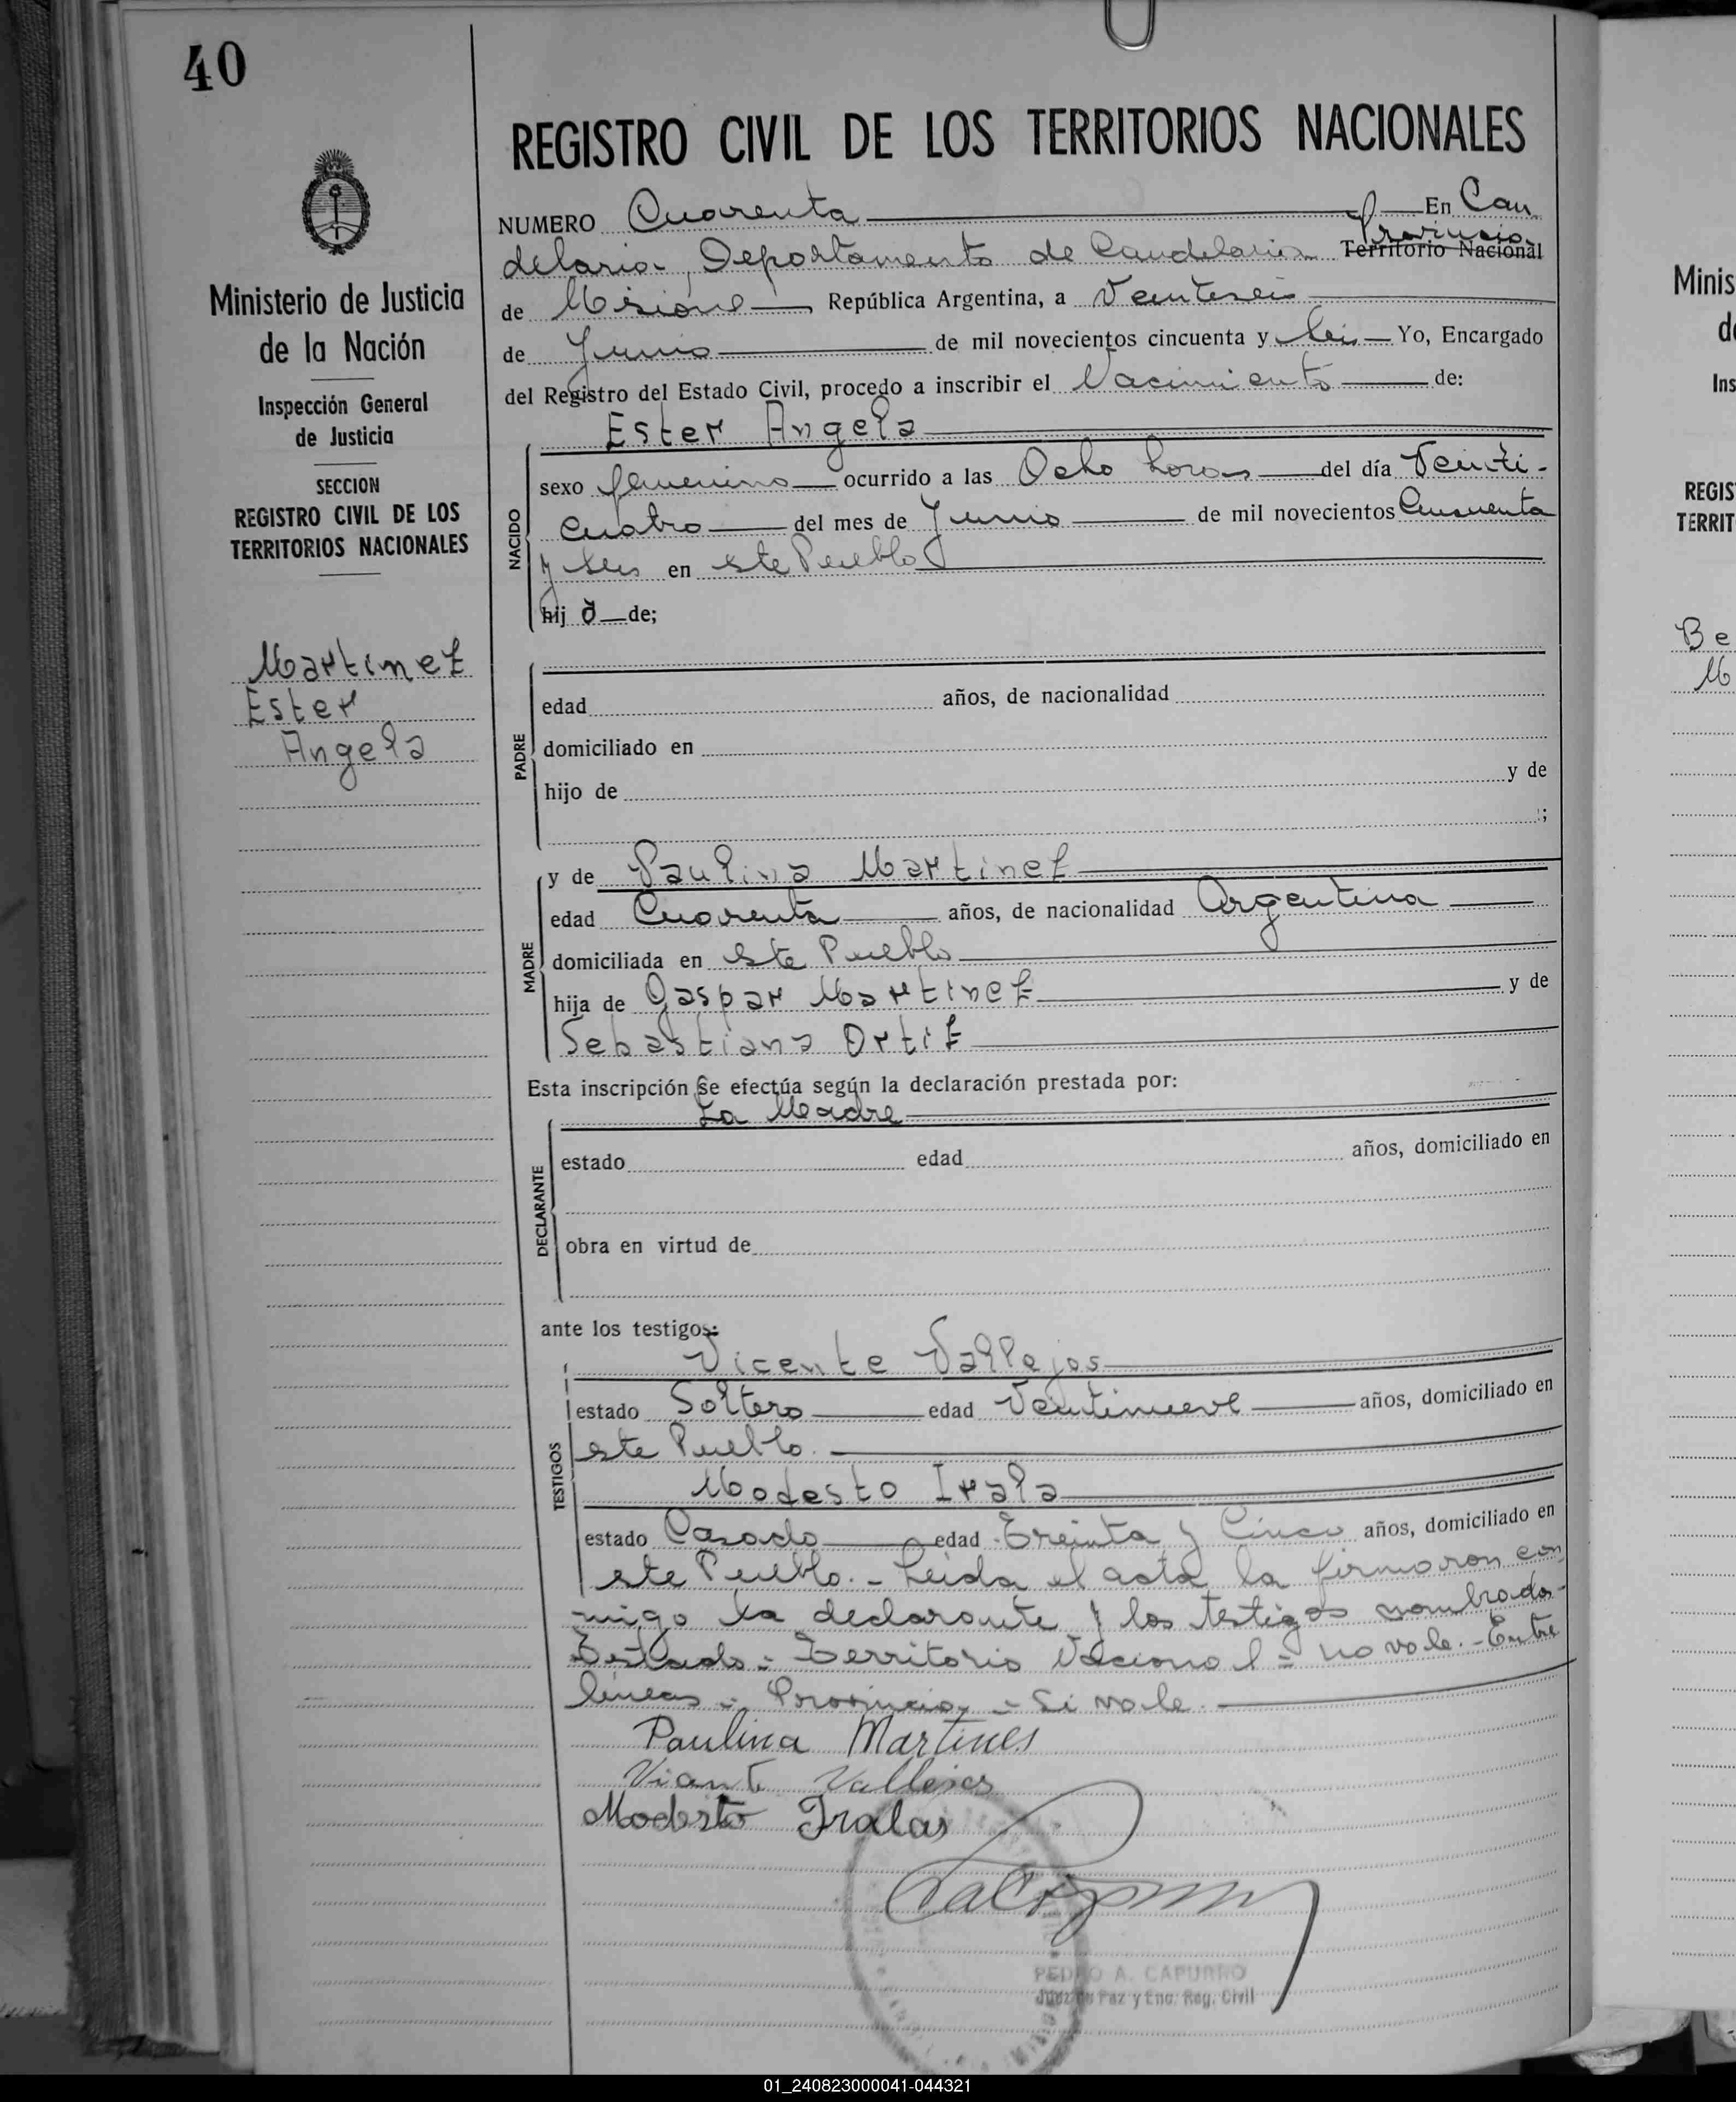 40
REGISTRO CIVIL DE LOS TERRITORIOS NACIONALES
Ministerio de Justicia
de la Nación
Inspección General
de Justicia
SECCION
REGISTRO CIVIL DE LOS
TERRITORIOS NACIONALES
Martinez
Ester
Angela
NUMERO Cuarenta En Can
delaria, Departamento de Candelaria Provincia Territorio Nacional
de Misiones República Argentina, a Veinteseis
de Junio de mil novecientos cincuenta y seis Yo, Encargado
del Registro del Estado Civil, procedo a inscribir el Nacimiento de:
Ester Angela
NACIDO
sexo femenino ocurrido a las Ocho horas del día Veinti-
cuatro del mes de Junio de mil novecientos Cincuenta
y seis en este Pueblo
hij a de;
PADRE
edad años, de nacionalidad
domiciliado en
hijo de y de
;
MADRE
y de Paulina Martinez
edad Cuarenta años, de nacionalidad Argentina
domiciliada en este Pueblo
hija de Gaspar Martinez y de
Sebastiana Ortiz
Esta inscripción se efectúa según la declaración prestada por:
La Madre
DECLARANTE
estado edad años, domiciliado en
obra en virtud de
ante los testigos:
TESTIGOS
Vicente Vallejos
estado Soltero edad Veintinueve años, domiciliado en
este Pueblo.
Modesto Irala
estado Casado edad Treinta y Cinco años, domiciliado en
este Pueblo. - Leida el acta la firmaron con
migo la declarante y los testigos nombrados-
Testado = Territorio Nacional = no vale. - Entre
lineas = Provincia = Si vale.
Paulina Martines
Vicente Vallejos
Modesto Iralas
PEDRO A. CAPURRO
Juez de Paz y Enc. Reg. Civil
Minis
de
Ins
REGIS
TERRIT
Be
M
01_240823000041-044321